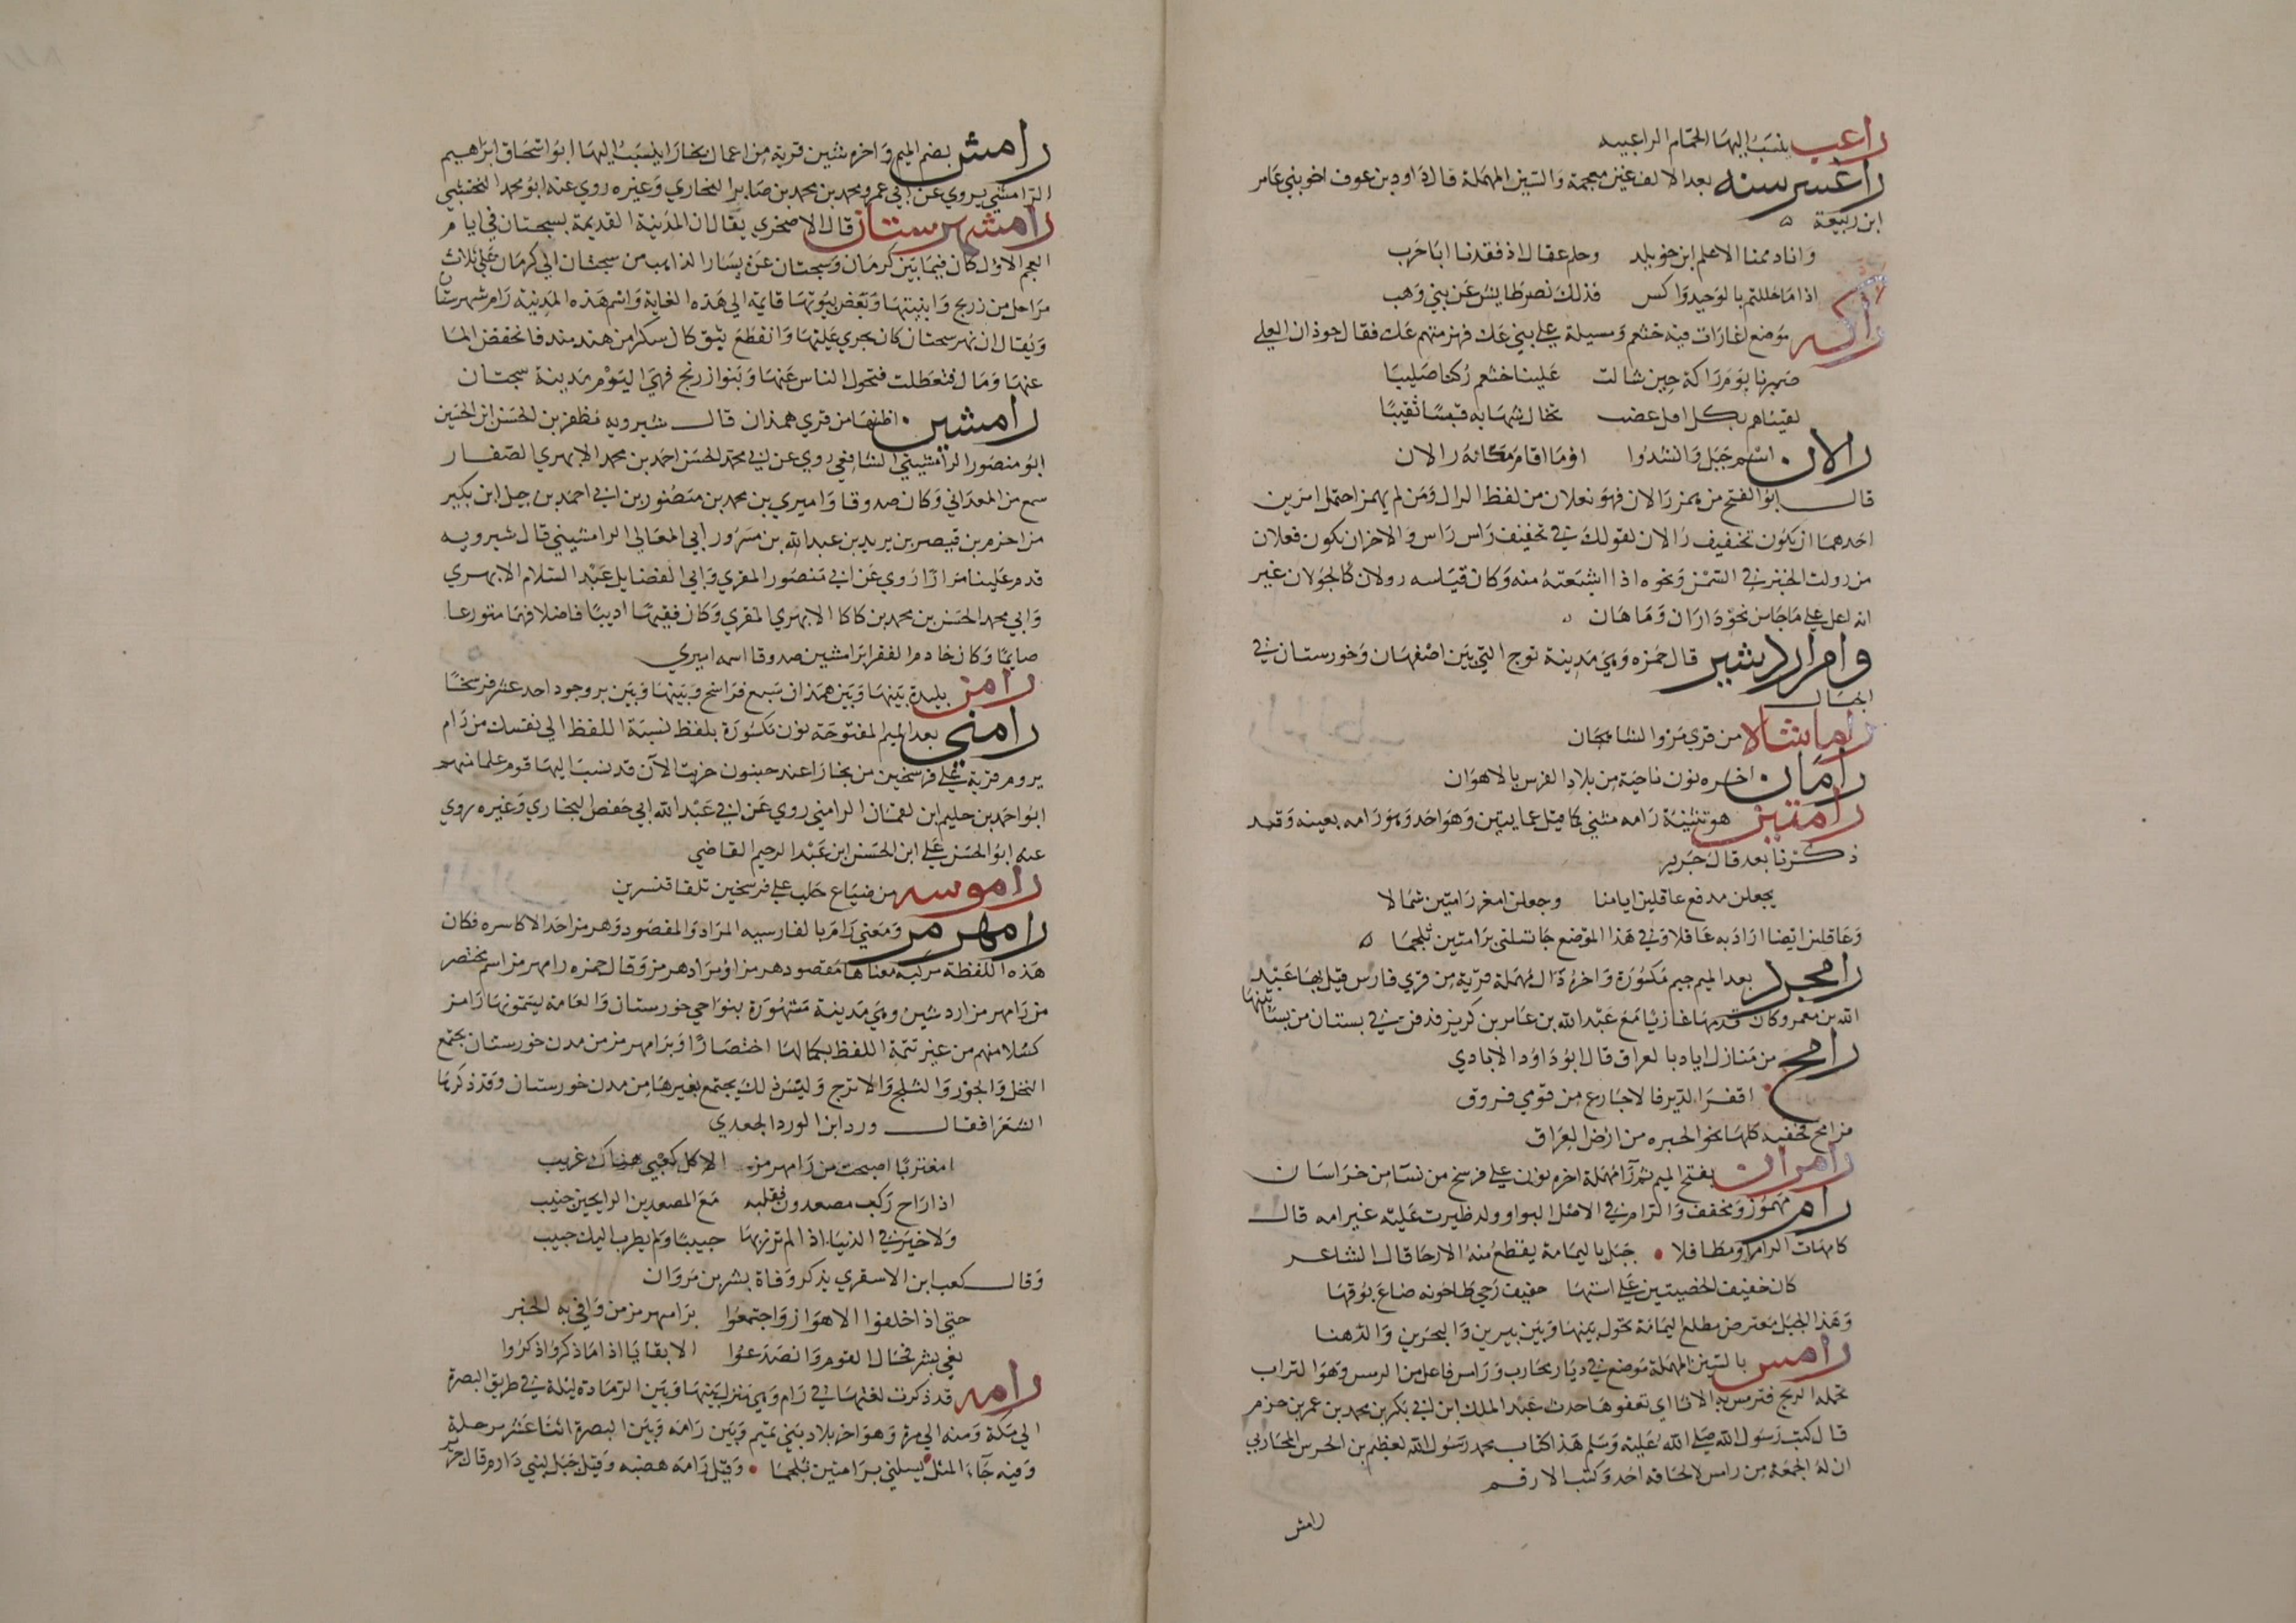 راعب ينسب اليها الحمام الراعبيه
راغسرسنه بعد الالف غين معجمة والسين المهملة قال داود بن عوف اخو بني عامر
ابن ربيعة
وانا دممنا الاعلم ابن خويلد وحلم عقال اذ فقدنا ابا حرب
اذا ما حللتم بالوحيد واكس فذلك نصر طايش عن بني وهب
راكه موضع اغارات فيه خثعم ومسيلة على بني عك فهزمتهم عك فقال حوذان العلى
صبرنا يوم راكة حين شالت علينا خثعم ركنا صليبا
لقيناهم بكل افل عضب تخال شهابه قبسا ثقيبا
رالان اسم جبل وانشدوا اوما اقام مكانه رالان
قال ابو الفتح من همز رالان فهو فعلان من لفظ الرال ومن لم يهمز احتمل امرين
احدهما ان يكون تخفيف رالان لقولك في تخفيف راس راس والاخر ان يكون فعلان
من رولت الخبز في السمن ونحوه اذا اشبعته منه وكان قياسه رولان كالجولان غير
انه اعل على ما جا من نحو داران وماهان
وامراردشير قال حمزه وهي مدينة توج التي بين اصفهان وخورستان في
الجبال
راماشالا من قري مرو الشاهجان
رامان اخره نون ناحية من بلاد الفرس بالاهوان
رامتين هو تثنية رامه مثني كما قيل عمايتين وهو واحد وهو رامه بعينه وقد
ذكرنا بعد قال جرير
يجعلن مدفع عاقلين ايامنا وجعلن امعز رامتين شمالا
وعاقلين ايضا اراد به عاقلا وفي هذا الموضع جا تسلني برامتين تلجما
رامجرد بعد الميم جيم مكسورة واخره دال مهملة قرية من قري فارس قتل بها عبيد
الله بن معمر وكان قدمها غازيا مع عبد الله بن عامر بن كريز فدفن في بستان من بساتينها
رامح من منازل اياد بالعراق قال ابو داود الايادي
اقفر الدير فالاجارع من قومي فروق
فرامح فخفيه كلها نحو الحيره من ارض العراق
رامران بفتح الميم ثم را مهملة اخره نون على فرسخ من نسا من خراسان
رام مهموز ومخفف والرام في الاصل البو او ولد ظيرت عليه غير امه قال
كامهات الرام او مطافلا جبل باليمامة يقتطع منه الارحا قال الشاعر
كان خفيف الخصيتين على استها حفيف رحي طاحونه ضاع بوقها
وهذا الجبل معترض مطلع اليمامة تحول بينها وبين يبرين والبحرين والدهنا
رامس بالسين المهملة موضع في ديار محارب ورامس فاعل من الرمس وهو التراب
تحمله الريح فترمس به الاثار اي تعفوها حدث عبد الملك ابن ابي بكر بن محمد بن عمر بن حزم
قال كتب رسول الله صلى الله عليه وسلم هذا كتاب محمد رسول الله لعظيم بن الحرس المحاربي
ان له الجمعه من رامس لا لحافه احد وكتب الارقم
رامش
رامش بضم الميم واخره شين قرية من اعمال بخارا ينسب اليها ابو اسحاق ابراهيم
الرامشي يروي عن ابي عمرو محمد بن محمد بن صابر البخاري وغيره روي عنه ابو محمد النخشبي
رامشهرستان قال الاصخري يقال ان المدينة القديمة بسجستان في ايام
العجم الاول كان فيما بين كرمان وسجستان عن يسار الذاهب من سجستان الي كرمان على ثلاث
مراحل من زرنج وابنيتها وبعض بيوتها قايمة الي هذه الغاية واسم هذه المدينة رامشهرستان
ويقال ان نهر سجستان كان يجري عليها وانقطع بثق كان سكر من هندمند فانخفض الما
عنها ومال فتعطلت فتحول الناس عنها وبنوا زرنج فهي اليوم مدينة سجستان
رامشين اظنها من قري همذان قال شيرويه مظفر بن الحسن ابن الحسين
ابو منصور الرامشيني الشافعي روي عن ابي محمد الحسن احمد بن محمد الابهري الصفار
سمع من المعداني وكان صدوقا واميري بن محمد بن منصور بن ابي احمد بن جيل ابن بكير
من احزم بن قيصر بن يريد بن عبد الله بن مسرور ابي المعالي الرامشيني قال شيرويه
قدم علينا مرارا روي عن ابي منصور المقري وابي الفضايل عبد السلام الابهري
وابي محمد الحسن بن محمد بن كاكا الابهري المقري وكان فقيها اديبا فاضلا فهما متورعا
صايما وكان خادم الفقرا برامشين صدوقا اسمه اميري
رامن بليدة بينها وبين همذان سبع فراسخ وبينها وبين بروجود احد عشر فرسخا
رامني بعد الميم المفتوحة نون مكسورة بلفظ نسبة اللفظ الي نفسك من رام
يروم قرية على فرسخين من بخارا عند حبنون خربت الآن قد نسب اليها قوم علما منهم
ابو احمد بن حليم ابن لقمان الرامني روي عن ابي عبد الله ابي حفص البخاري وغيره روي
عنه ابو الحسن علي ابن الحسن ابن عبد الرحيم القاضي
راموسه من ضياع حلب على فرسخين تلقا قنسرين
رامهرمز ومعني رام بالفارسيه المراد والمقصود وهرمز احد الاكاسره فكان
هذه اللفظة مركبه معناها مقصود هرمز او مراد هرمز وقال حمزه رامهرمز اسم مختصر
من رامهرمز اردشير وهي مدينة مشهورة بنواحي خورستان والعامة يسمونها رامز
كسلا منهم من غير تتمة اللفظ بكمالها اختصارا وبرامهرمز من مدن خورستان يجتمع
النخل والجوز والثلج والاترج وليس ذلك يجتمع بغيرها من مدن خورستان وقد ذكرها
الشعرا فقال ورد ابن الورد الجعدي
امغتربا اصبحت من رامهرمز الا كل كعبي هناك غريب
اذا راح ركب مصعدون فقلبه مع المصعدين الرايحين جنيب
ولا خير في الدنيا اذا لم تزرها حبيبا ولم يطرب اليك حبيب
وقال كعب ابن الاسقري يذكر وفاة بشر بن مروان
حتي اذا خلفوا الاهواز واجتمعوا برامهرمز من وافي به الخبر
نعي بشر فحال القوم وانصدعوا الا بقايا اذا ما ذكروا ذكروا
رامه قد ذكرت لغتها في رام وهي منزل بينها وبين الرمادة ليلة في طريق البصرة
الي مكة ومنه الي مرة وهو اخر بلاد بني تميم وبين رامه وبين البصرة اثنا عشر مرحلة
وفيه جاء المثل تسلني برامتين تلجما وقيل رامه هضبه وقيل جبل لبني دارم قال جرير